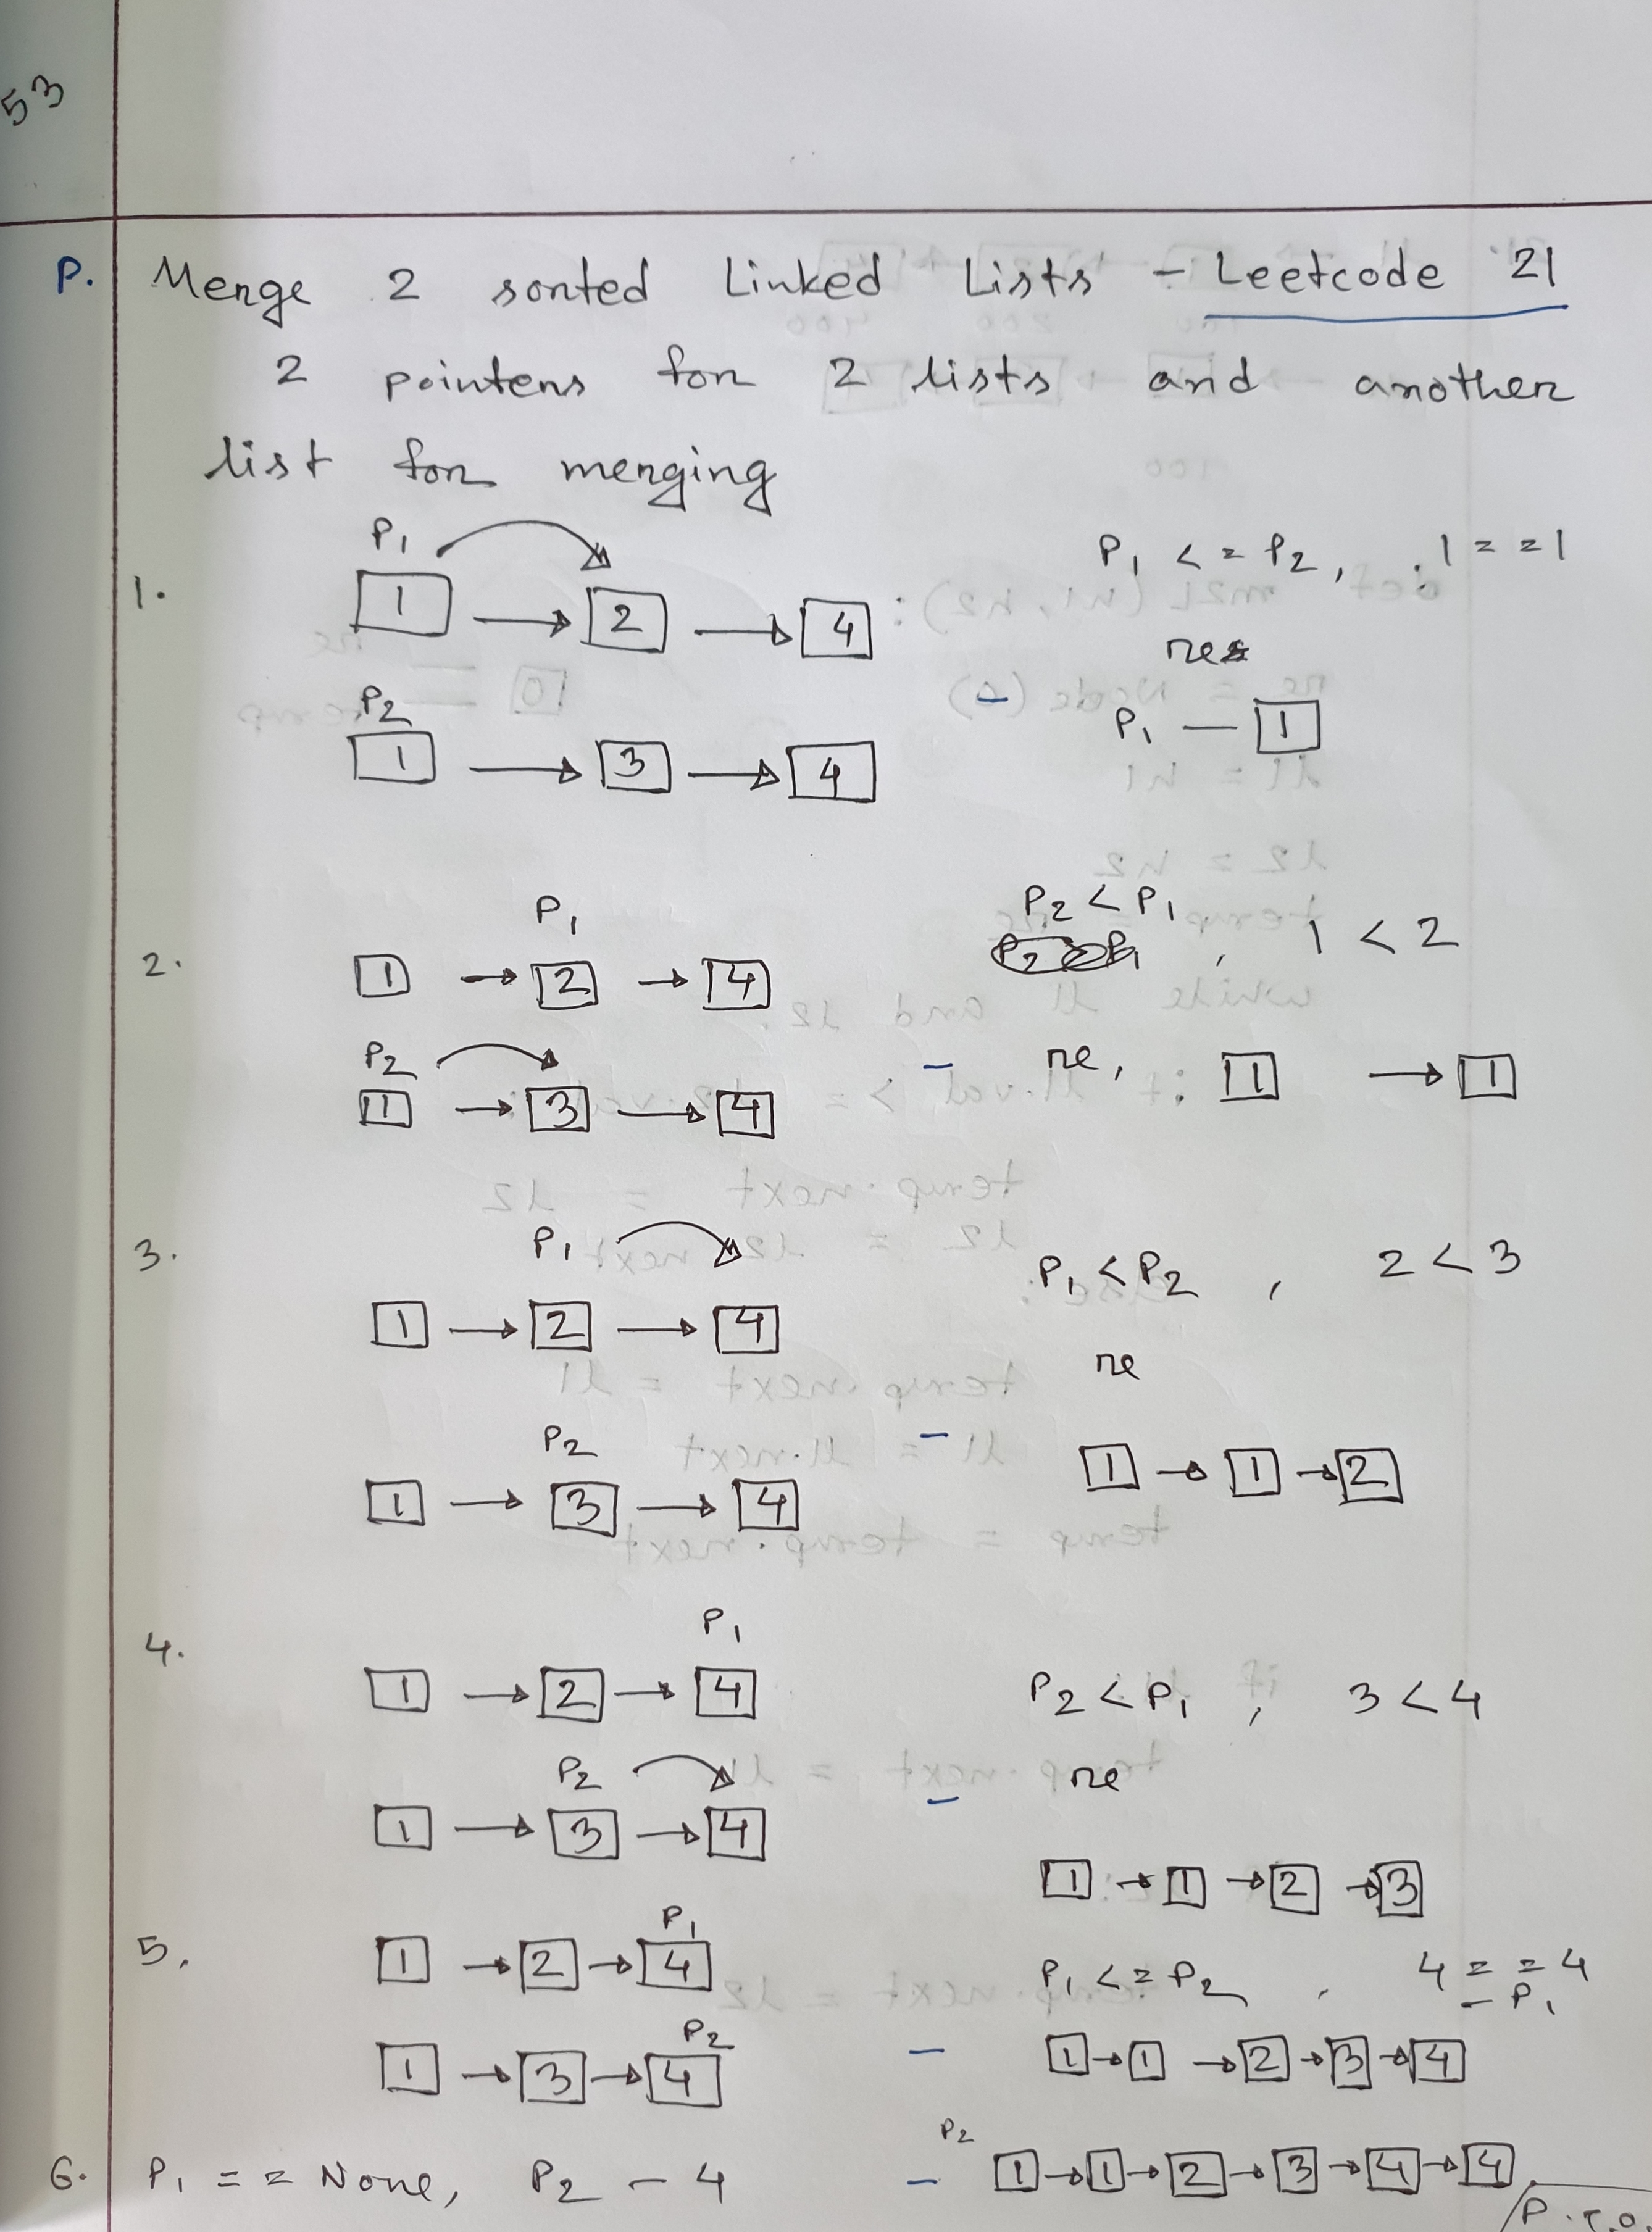 53
P. Merge 2 sorted Linked Lists - Leetcode 21
2 pointers for 2 lists and another
list for merging
P1
1. 1 → 2 → 4
P1 <= P2, 1 == 1
res
P2
1 → 3 → 4
P1 — 1
P1
2. 1 → 2 → 4
P2 < P1, 1 < 2
P2
1 → 3 → 4
- re, 1 → 1
3. P1
1 → 2 → 4
P1 < P2, 2 < 3
re
P2
1 → 3 → 4
- 1 → 1 → 2
4. P1
1 → 2 → 4
P2 < P1, 3 < 4
P2
1 → 3 → 4
- re
1 → 1 → 2 → 3
P1
5. 1 → 2 → 4
P1 <= P2, 4 == 4
- P1
P2
1 → 3 → 4
- 1 → 1 → 2 → 3 → 4
P2
6. P1 == None, P2 - 4 - 1 → 1 → 2 → 3 → 4 → 4
P.T.O.